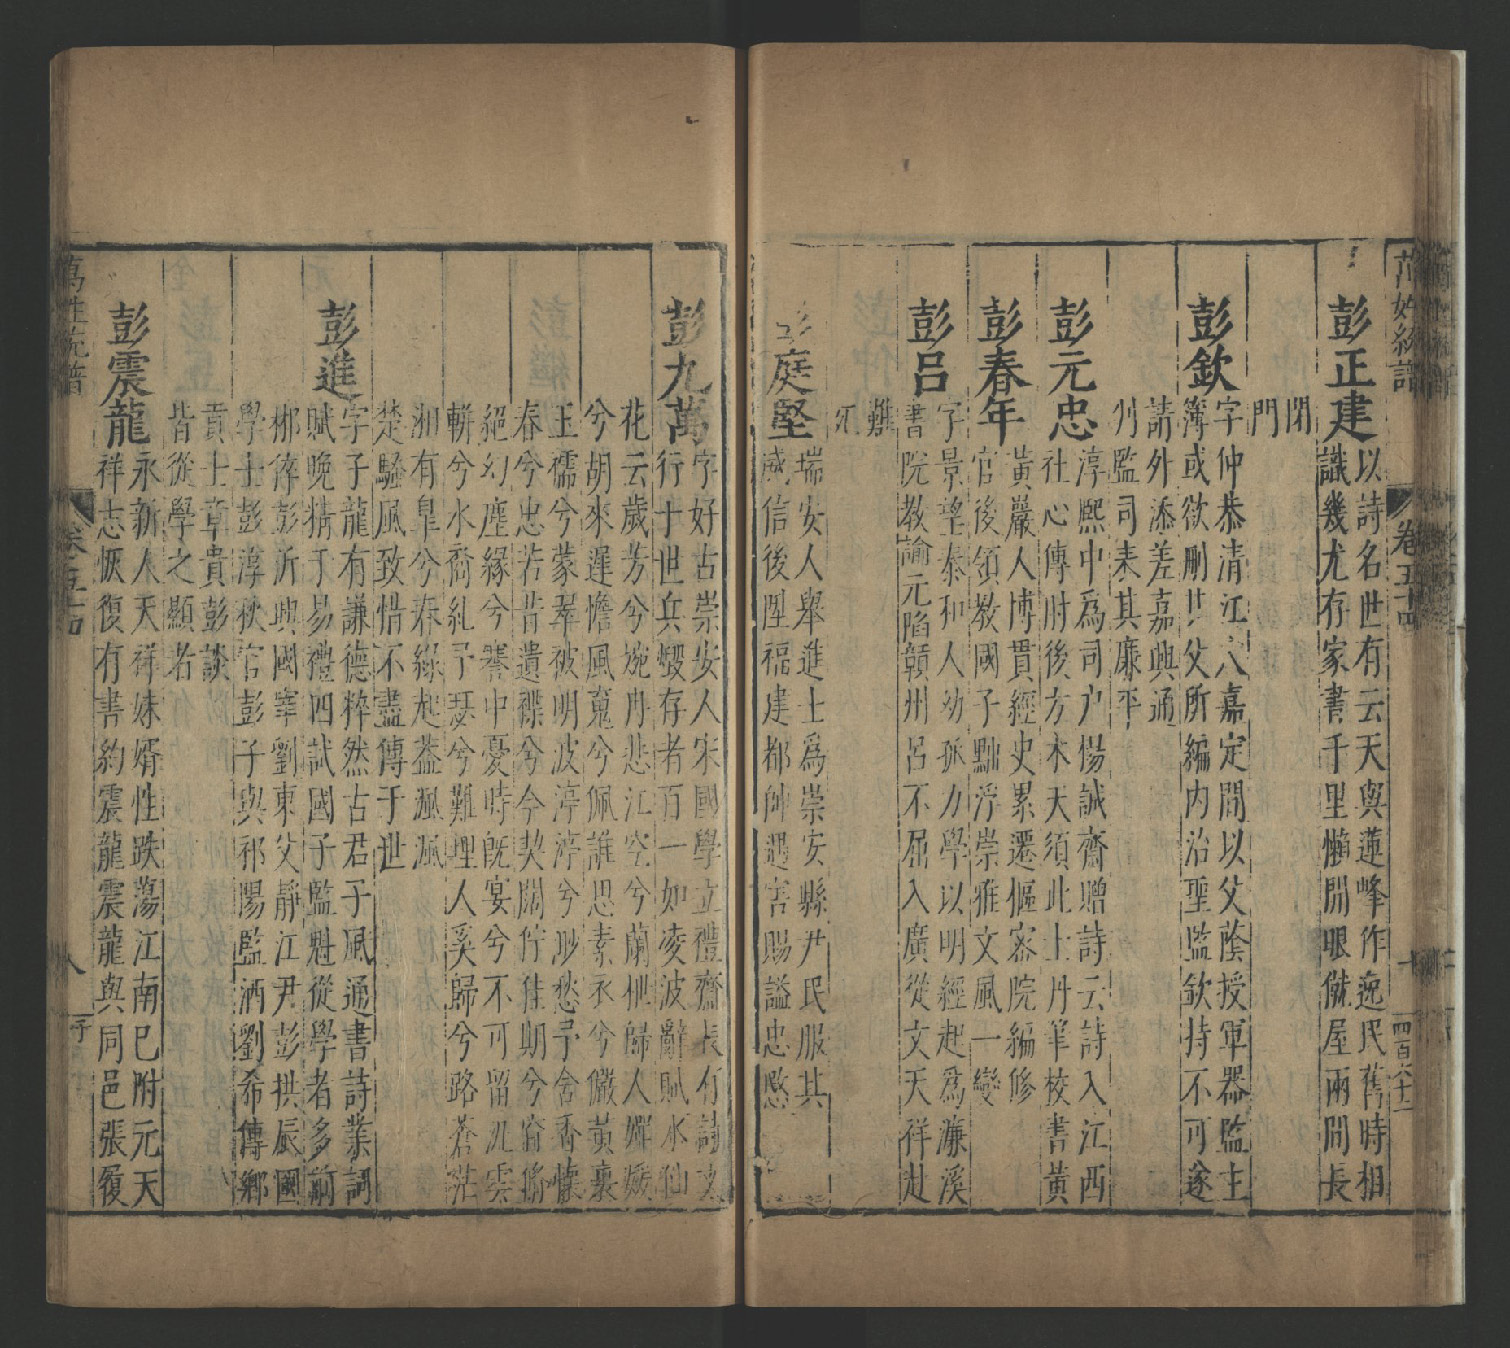 萬姓統譜
卷五十四
十
四百六十二
彭正建
以詩名世有云天與蓮峰作逸民舊時相
識幾尤存家書千里懶開眼僦屋兩間長
閉
門
彭欽
字仲恭清江人嘉定間以父蔭授軍器監主
簿或欲刪其父所編內治聖監欽持不可遂
請外添差嘉興通
判監司表其廉平
彭元忠
淳熙中為司戶楊誠齋贈詩云詩入江西
社心傳肘後方木天須此士丹筆校書黃
彭春年
黃嚴人博貫經史累遷樞密院編修
官後領教國子黜浮崇雅文風一變
彭呂
字景望泰和人幼孤力學以明經起為濂溪
書院教諭元陷贛州呂不屈入廣從文天祥赴
難
死
彭庭堅
瑞安人舉進士為崇安縣尹民服其
威信後陞福建都帥遇害賜謚忠愍
彭九萬
字好古崇安人宋國學立禮齋長有詩文
行于世兵燬存者百一如凌波辭賦水仙
花云歲芳兮婉冉悲江空兮蘭枻歸人嬋媛
兮胡來遲憺風蒐兮佩誰思素衣兮儼黃裏
玉孺兮蒙翠被明波渟渟兮渺愁予含香懷
春兮忠若昔遺褋兮兮契闊佇佳期兮窅窬
絕幻塵緣兮騫中憂時既宴兮不可留汎雲
輧兮水裔糺予瑟兮難理人奚歸兮路蒼茫
湘有皐兮春綠起益渢渢
楚騷風致惜不盡傳于世
彭進
字子龍有謙德粹然古君子風通書詩業詞
賦晚精于易禮四試國子監魁從學者多前
郴倅彭沂興國宰劉東父靜江尹彭拱辰國
學士彭淳秋官彭子與祁陽監酒劉希傳鄉
貢士章貴彭談
皆從學之顯若
彭震龍
永新人天祥妹婿性跌蕩江南已附元天
祥志恢復有書約震龍震龍與同邑張履
萬姓統譜
卷五十四
八